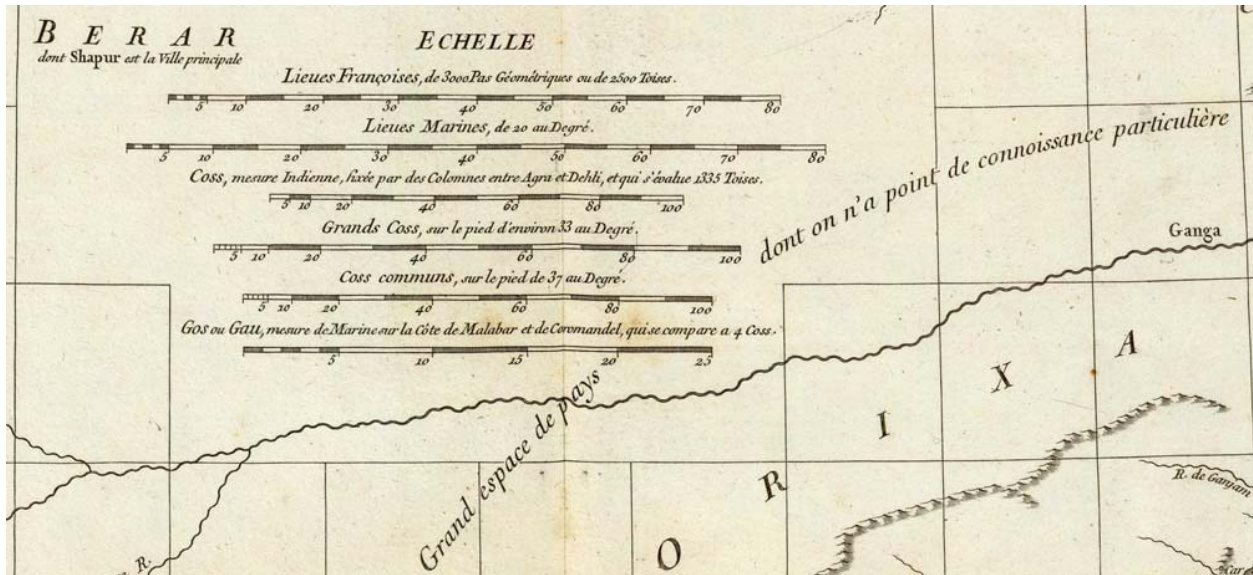 BERAR
dont Shapur est la Ville principale
ECHELLE
Lieues Françoises, de 3000 Pas Géométriques ou de 2500 Toises.
5 10 20 30 40 50 60 70 80
Lieues Marines, de 20 au Degré.
5 10 20 30 40 50 60 70 80
Coss, mesure Indienne, fixée par des Colomnes entre Agra et Dehli, et qui s'évalue 1335 Toises.
5 10 20 40 60 80 100
Grands Coss, sur le pied d'environ 33 au Degré.
5 10 20 40 60 80 100
Coss communs, sur le pied de 37 au Degré.
5 10 20 40 60 80 100
Gos ou Gau, mesure de Marine sur la Côte de Malabar et de Coromandel, qui se compare a 4 Coss.
5 10 15 20 25
Grand espace de pays
dont on n'a point de connoissance particulière
Ganga
ORIXA
R. de Ganjam
R.